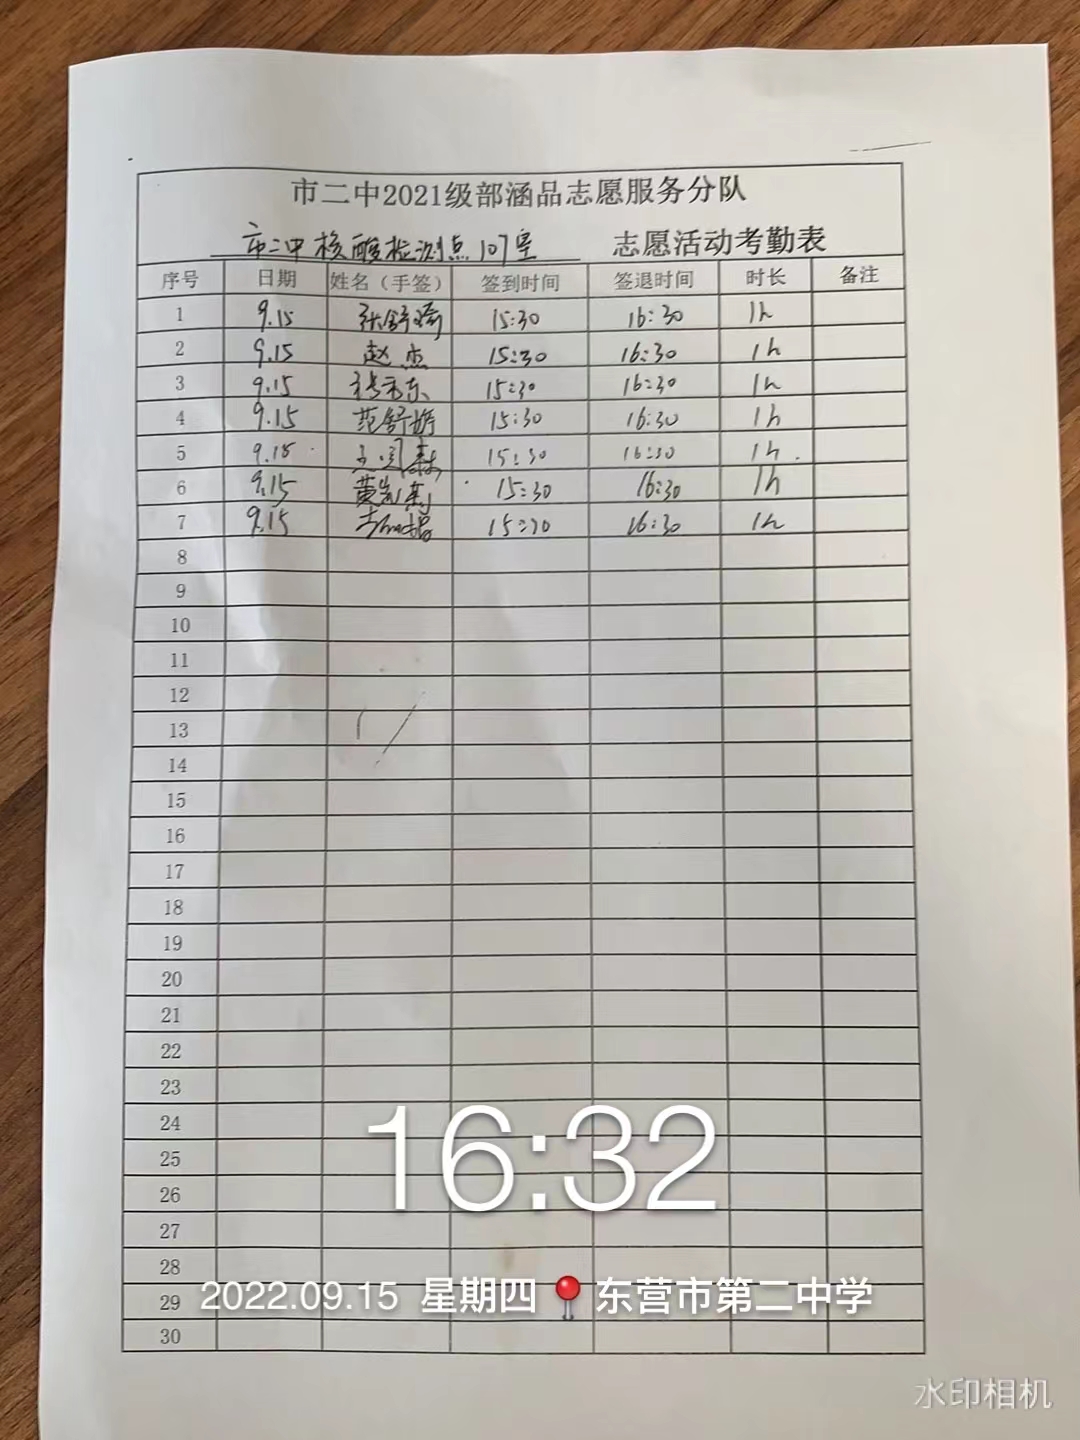 市二中2021级部涵品志愿服务分队
市二中核酸检测点107室 志愿活动考勤表
序号 日期 姓名（手签） 签到时间 签退时间 时长 备注
1 9.15 15:30 16:30 1h
2 9.15 赵杰 15:30 16:30 1h
3 9.15 15:30 16:30 1h
4 9.15 范舒婷 15:30 16:30 1h
5 9.15 15:30 16:30 1h.
6 9.15 15:30 16:30 1h
7 9.15 15:30 16:30 1h
8
9
10
11
12
13
14
15
16
17
18
19
20
21
22
23
24
16:32
25
26
27
28
29
2022.09.15 星期四 东营市第二中学
30
水印相机